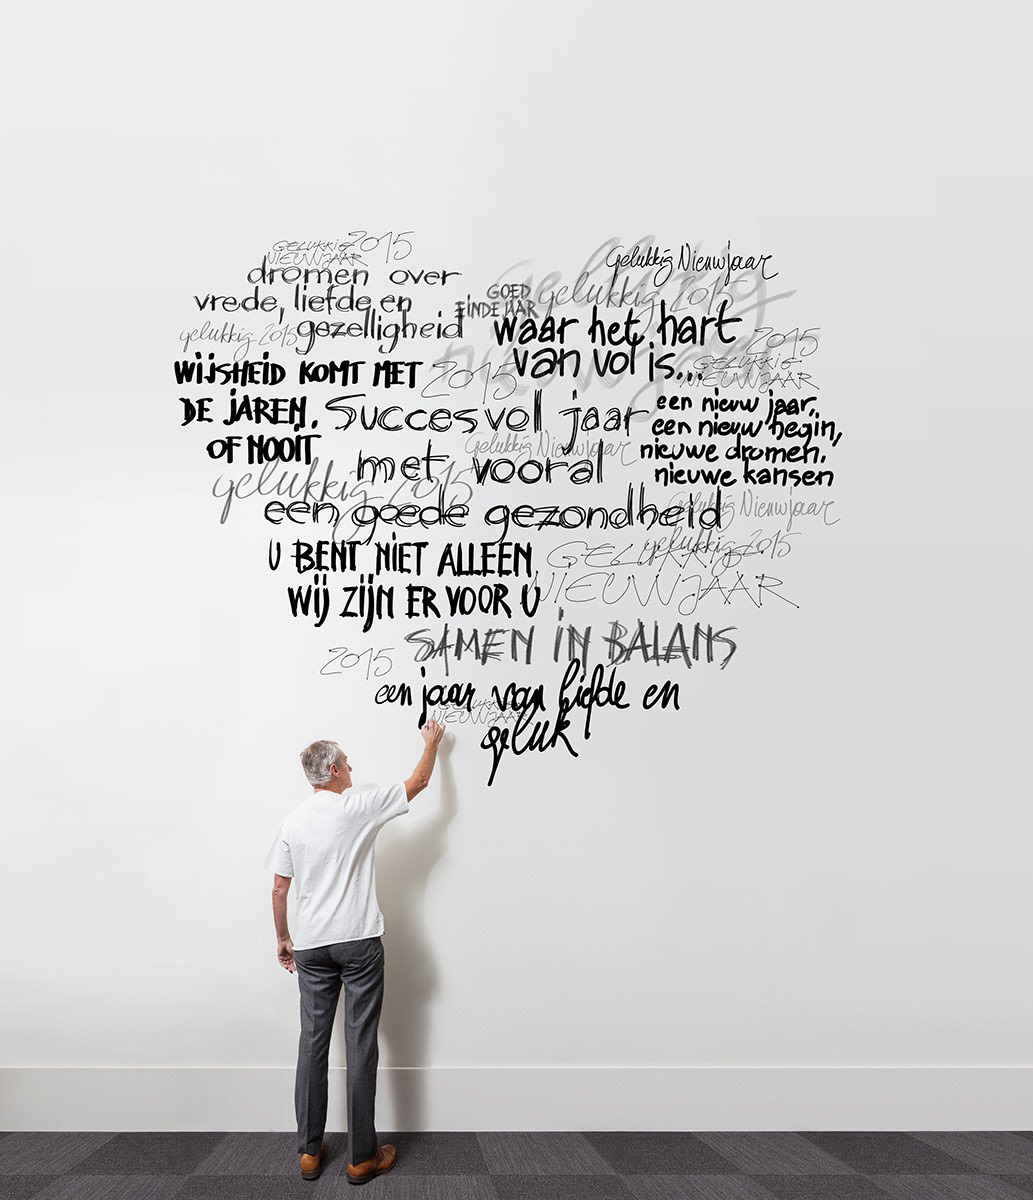 GELUKKIG 2015
NIEUWJAAR
dromen over
vrede, liefde en
gelukkig 2015 gezelligheid
WIJSHEID KOMT MET
DE JAREN,
OF NOOIT
2015
Gelukkig Nieuwjaar
GOED
EINDE JAAR
gelukkig 2015
Gelukkig
nieuwjaar
waar het hart
van vol is...
2015
GELUKKIG
NIEUWJAAR
Succesvol jaar
met vooral
een goede gezondheid
Gelukkig Nieuwjaar
gelukkig 2015
een nieuw jaar,
een nieuw begin,
nieuwe dromen,
nieuwe kansen
Gelukkig Nieuwjaar
gelukkig 2015
U BENT NIET ALLEEN
WIJ ZIJN ER VOOR U
GELUKKIG
NIEUWJAAR
SAMEN IN BALANS
2015
een jaar van liefde en
geluk
GELUKKIG
NIEUWJAAR